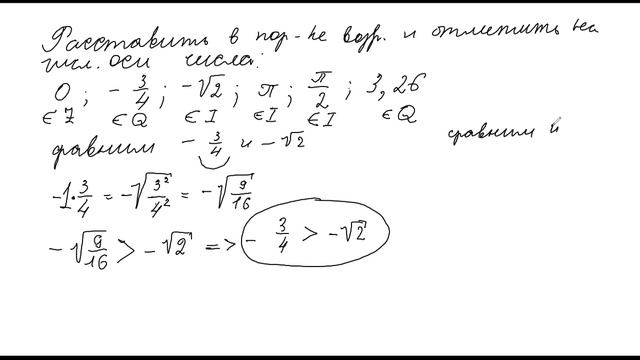 Расставить в пор-ке возр. и отметить на
числ. оси числа:
0 ; - 3/4 ; -√2 ; π ; π/2 ; 3,26
∈ Z ∈ Q ∈ I ∈ I ∈ I ∈ Q
сравним - 3/4 и -√2
сравним
-1·3/4 = -√(3²/4²) = -√(9/16)
-√(9/16) > -√2 => - 3/4 > -√2